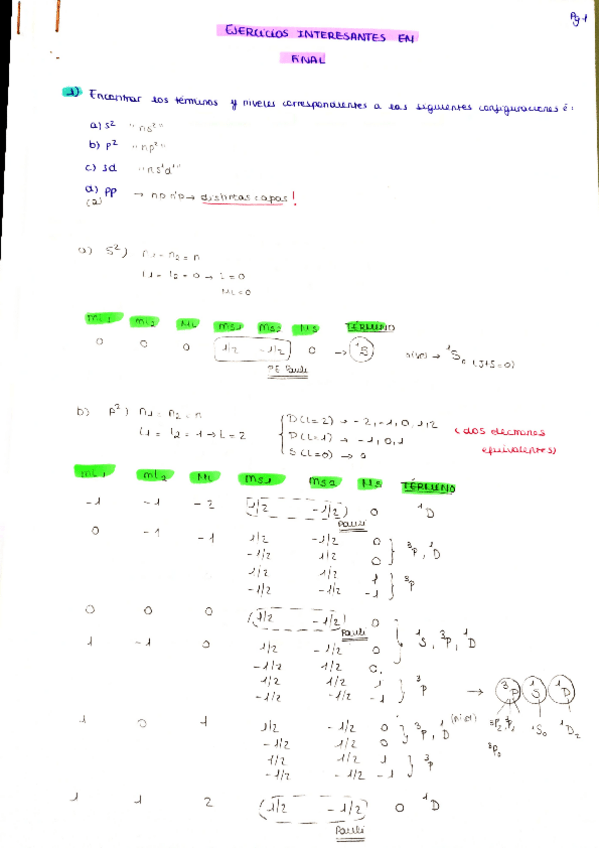 Pg 1
EJERCICIOS INTERESANTES EN
FINAL
1) Encontrar los términos y niveles correspondientes a las siguientes configuraciones é:
a) s² "ns²"
b) p² "np²"
c) sd "ns¹d¹"
d) pp → np n'p → distintas capas!
a) s²) n1 = n2 = n
l1 = l2 = 0 → L = 0
ML = 0
ml1 ml2 ML ms1 ms2 Ms TÉRMINO
0 0 0 1/2 -1/2 0 → ¹S nivel → ¹S₀ (J+S=0)
PE Pauli
b) p²) n1 = n2 = n
l1 = l2 = 1 → L = 2
D (L=2) → -2, -1, 0, 1, 2
P (L=1) → -1, 0, 1
S (L=0) → 0
(dos electrones
equivalentes)
ml1 ml2 ML ms1 ms2 Ms TÉRMINO
-1 -1 -2 1/2 -1/2 0 ¹D
Pauli
0 -1 -1 1/2 -1/2 0
-1/2 1/2 0 } ³P, ¹D
1/2 1/2 1
-1/2 -1/2 -1 } ³P
0 0 0 1/2 -1/2 0
Pauli
1 -1 0 1/2 -1/2 0 } ¹S, ³P, ¹D
-1/2 1/2 0
1/2 1/2 1
-1/2 -1/2 -1 } ³P
→ ³P ¹S ¹D
(nivel) ³P₂, ³P₁ ¹S₀ ¹D₂
³P₀
1 0 1 1/2 -1/2 0
-1/2 1/2 0 } ³P, ¹D
1/2 1/2 1
-1/2 -1/2 -1 } ³P
1 1 2 1/2 -1/2 0 ¹D
Pauli